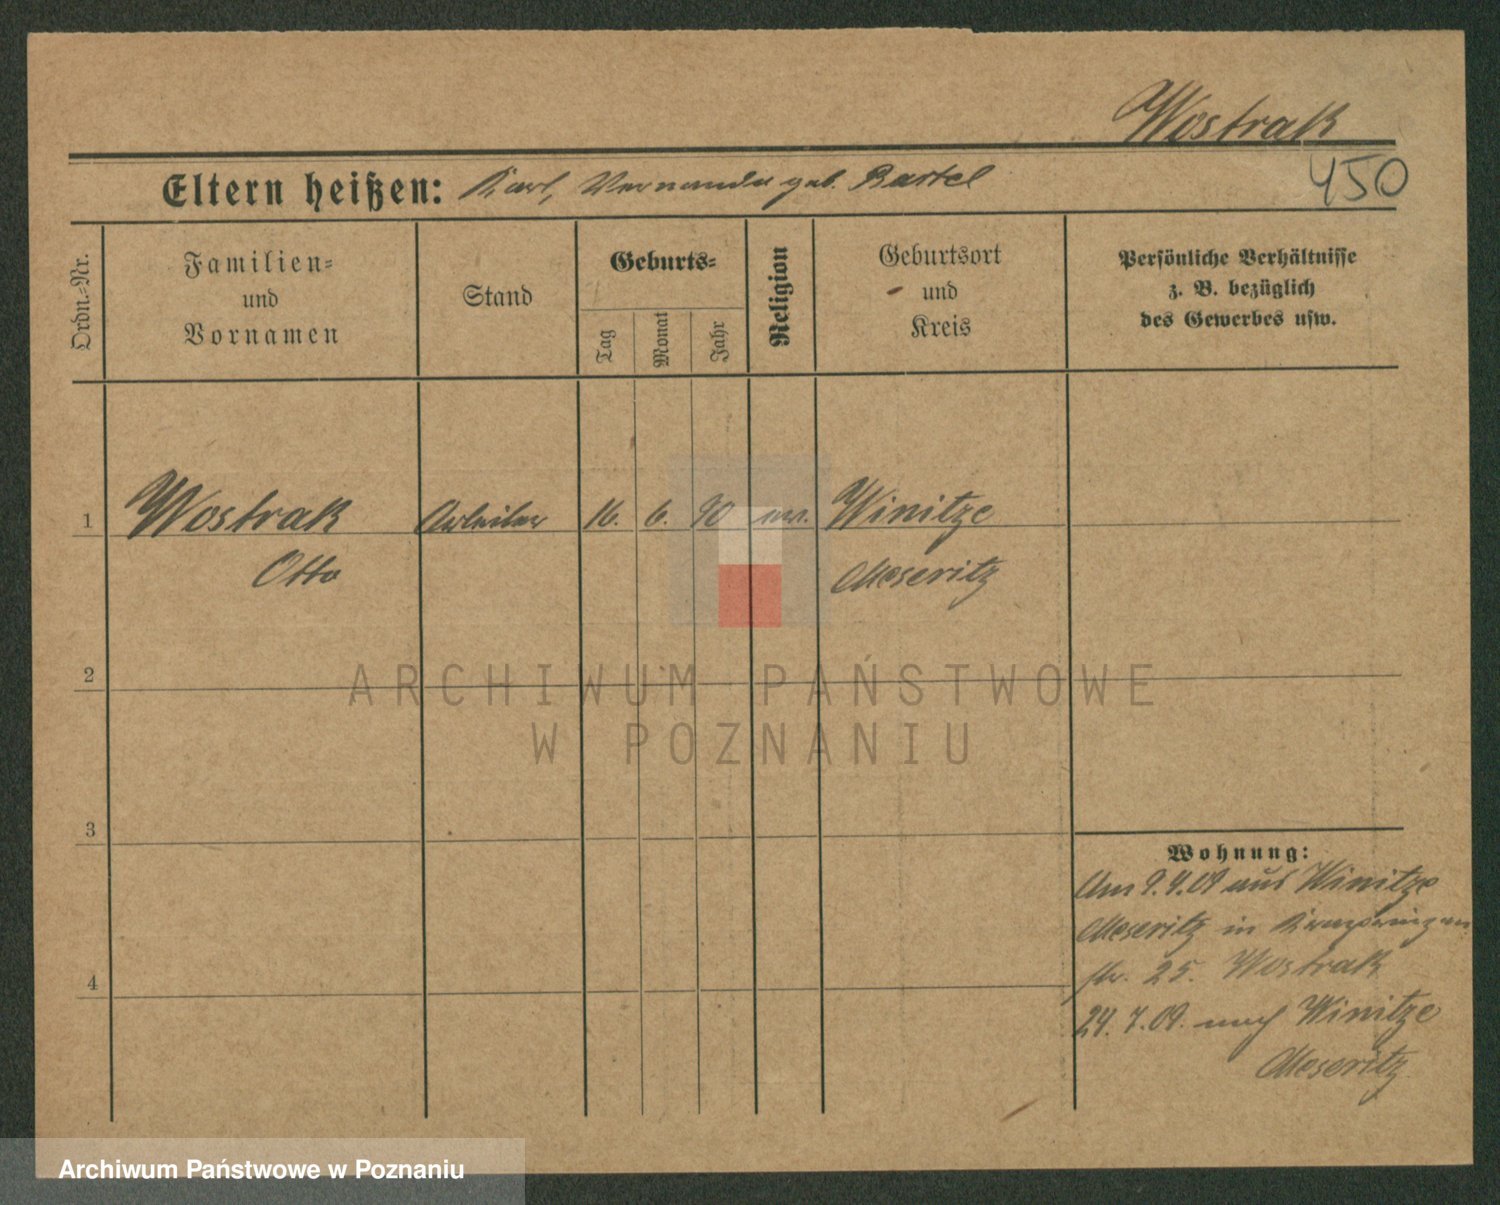 Wostrak
450
Eltern heißen: Karl, geb. Bartel
Ordn.-Nr.
Familien-
und
Vornamen
Stand
Geburts-
Tag
Monat
Jahr
Religion
Geburtsort
und
Kreis
Persönliche Verhältnisse
z. B. bezüglich
des Gewerbes usw.
1 Wostrak Arbeiter 16. 6. 90 Winitze
Otto Meseritz
2
ARCHIWUM PAŃSTWOWE
W POZNANIU
3
Wohnung:
Am 9.4.09 aus Winitze
Meseritz in
str. 25. Wostrak
4
24.7.09. nach Winitze
Meseritz
Archiwum Państwowe w Poznaniu